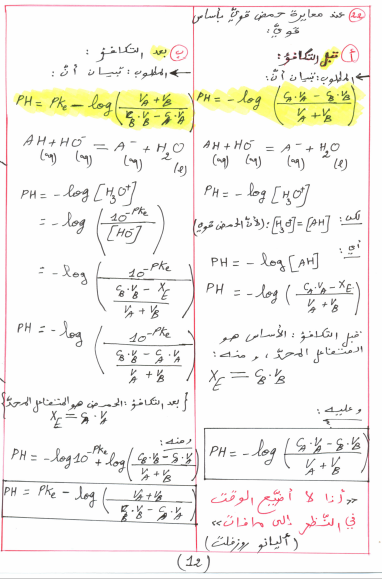 عند معايرة حمض قويّ بأساس
قويّ:
أ) قبل التكافؤ:
← المطلوب: تبيان أنّ:
PH = -log (C_A·V_A - C_B·V_B / V_A + V_B)
AH + HO⁻ = A⁻ + H₂O
(aq) (aq) (aq) (l)
PH = -log [H₃O⁺]
لكن: [H₃O⁺] = [AH] (لأنّ الحمض قويّ)
أي:
PH = -log [AH]
PH = -log (C_A·V_A - X_E / V_A + V_B)
قبل التكافؤ: الأساس هو
المتفاعل المحدّ، ومنه:
X_E = C_B·V_B
وعليه:
PH = -log (C_A·V_A - C_B·V_B / V_A + V_B)
«أنا لا أضيّع الوقت
في النّظر إلى ما فات»
(إليانو روزفلت)
ب) بعد التكافؤ:
← المطلوب: تبيان أنّ:
PH = PKe - log (V_A + V_B / C_B·V_B - C_A·V_A)
AH + HO⁻ = A⁻ + H₂O
(aq) (aq) (aq) (l)
PH = -log [H₃O⁺]
= -log (10^-PKe / [HO⁻])
= -log (10^-PKe / (C_B·V_B - X_E / V_A + V_B))
PH = -log (10^-PKe / (C_B·V_B - C_A·V_A / V_A + V_B))
{بعد التكافؤ: الحمض هو المتفاعل المحدّ}
X_E = C_A·V_A
ومنه:
PH = -log 10^-PKe + log (C_B·V_B - C_A·V_A / V_A + V_B)
PH = PKe - log (V_A + V_B / C_B·V_B - C_A·V_A)
(12)